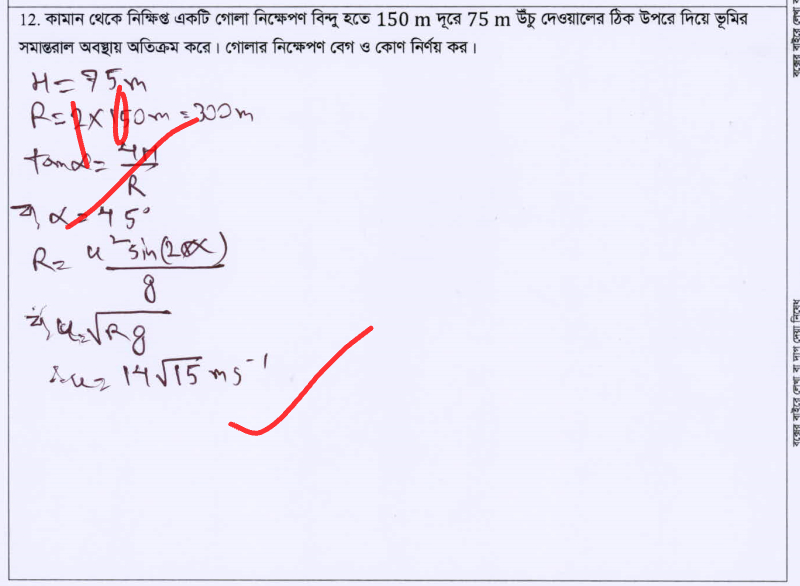 12. কামান থেকে নিক্ষিপ্ত একটি গোলা নিক্ষেপণ বিন্দু হতে 150 m দূরে 75 m উঁচু দেওয়ালের ঠিক উপরে দিয়ে ভূমির
সমান্তরাল অবস্থায় অতিক্রম করে। গোলার নিক্ষেপণ বেগ ও কোণ নির্ণয় কর।
H = 75m
R = 2 × 150m = 300m
tanα = 4H/R
⇒, α = 45°
R = u² sin(2α)/g
⇒, u = √Rg
∴ u = 14√15 ms⁻¹